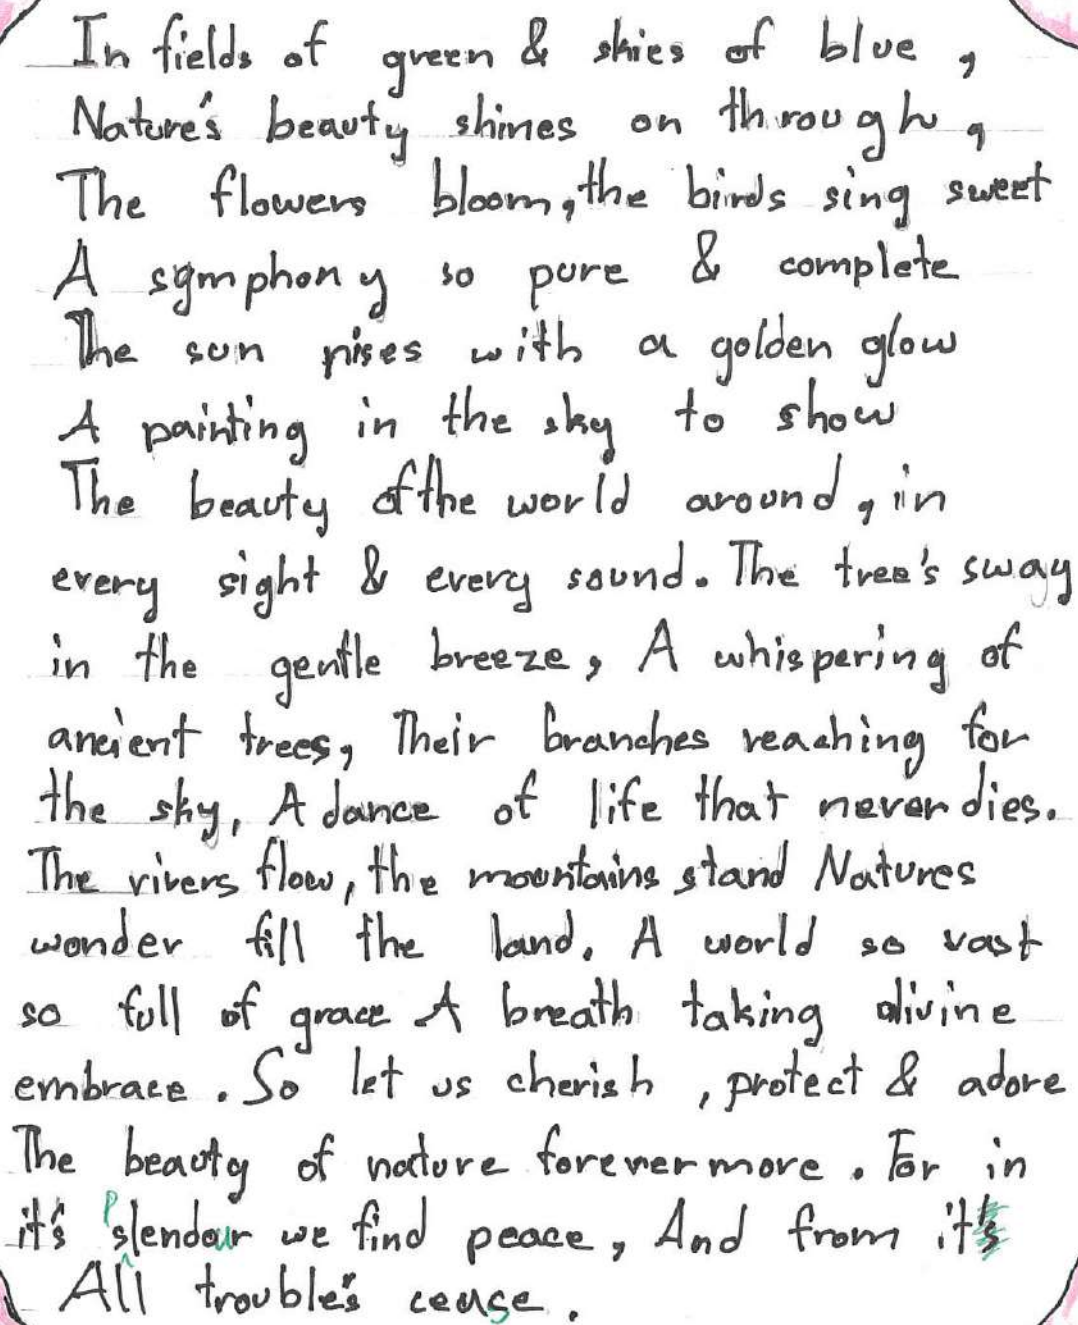 In fields of green & skies of blue,
Nature's beauty shines on through,
The flowers bloom, the birds sing sweet
A symphony so pure & complete
The sun rises with a golden glow
A painting in the sky to show
The beauty of the world around, in
every sight & every sound. The tree's sway
in the gentle breeze, A whispering of
ancient trees, Their branches reaching for
the sky, A dance of life that never dies.
The rivers flow, the mountains stand Natures
wonder fill the land. A world so vast
so full of grace A breath taking divine
embrace. So let us cherish, protect & adore
The beauty of nature forever more. For in
it's splendour we find peace, And from it's
All trouble's cease.